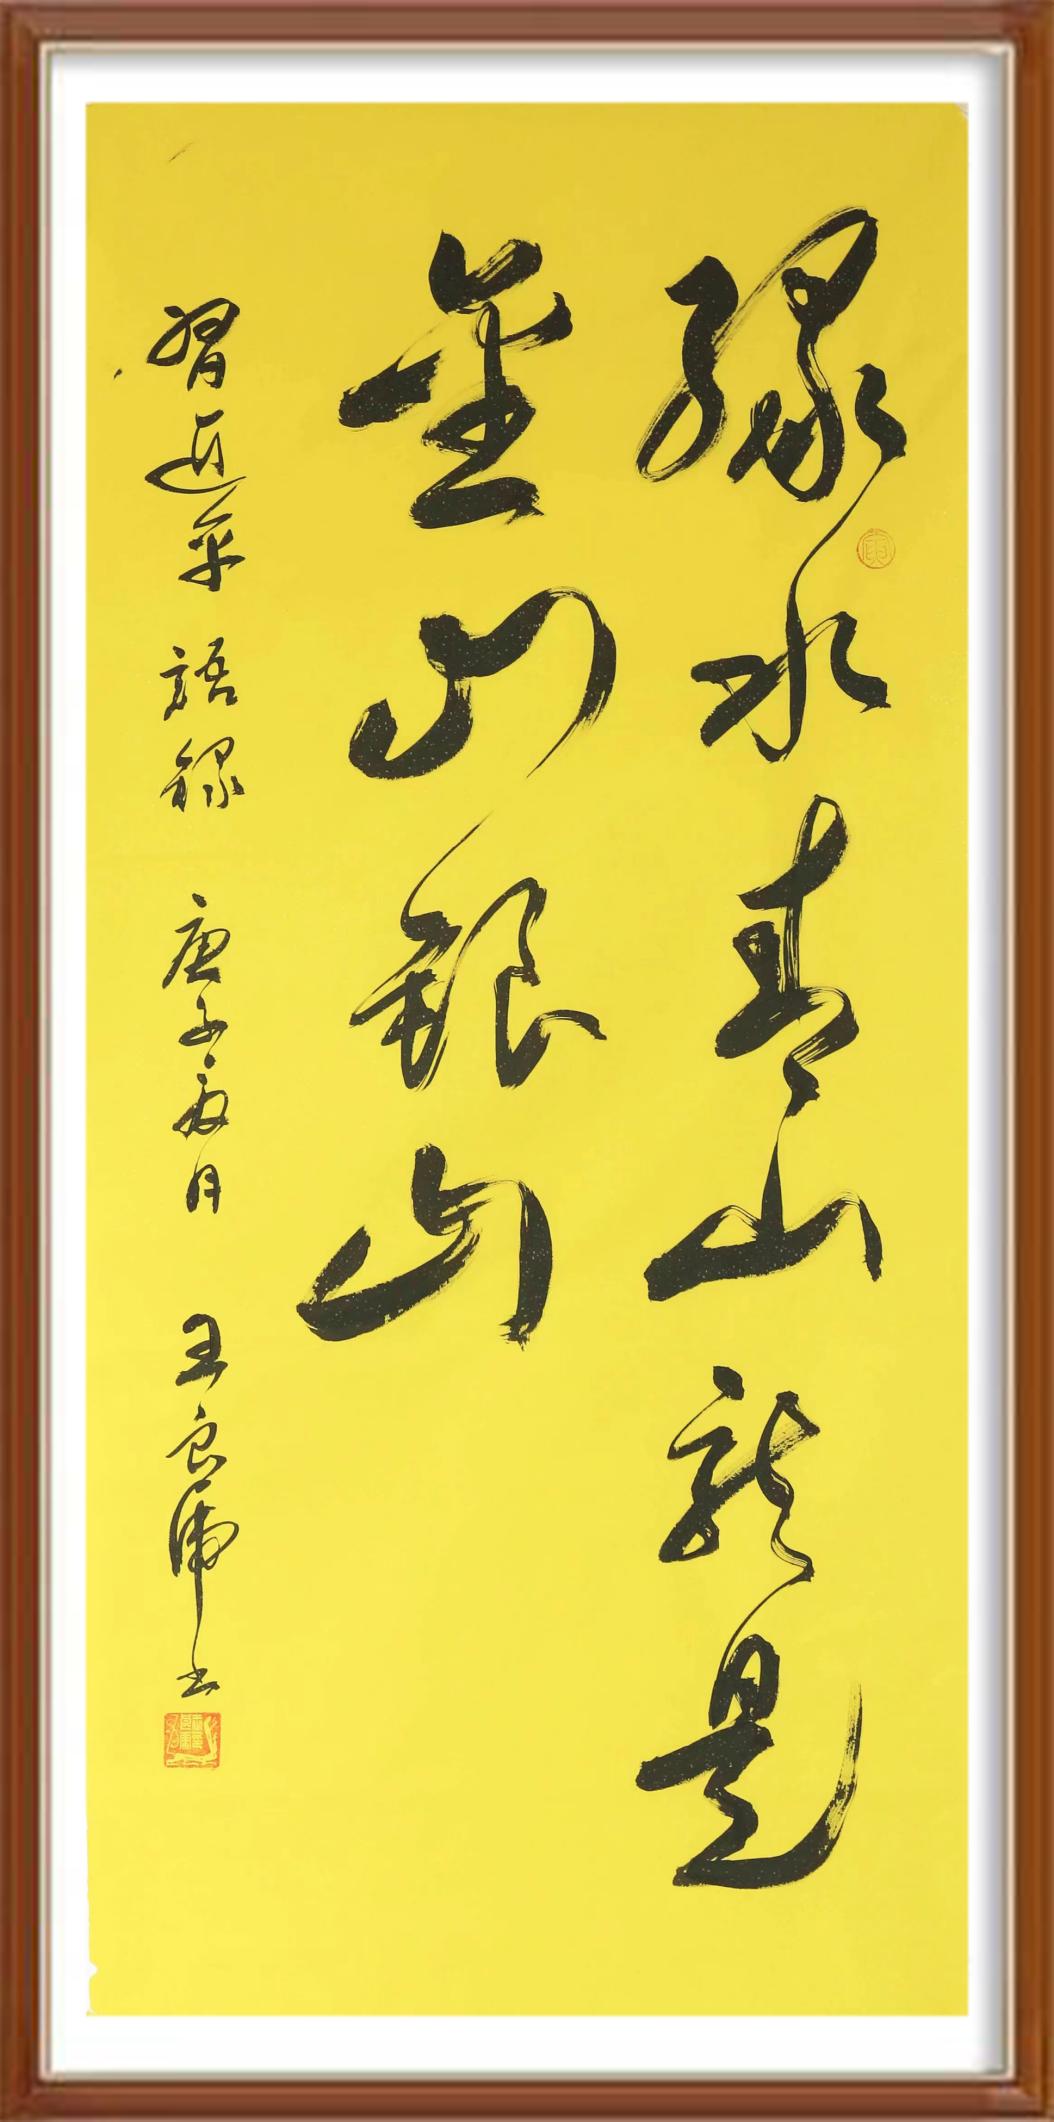 綠水青山就是
金山銀山
習近平語錄 庚子夏月 王良虎书